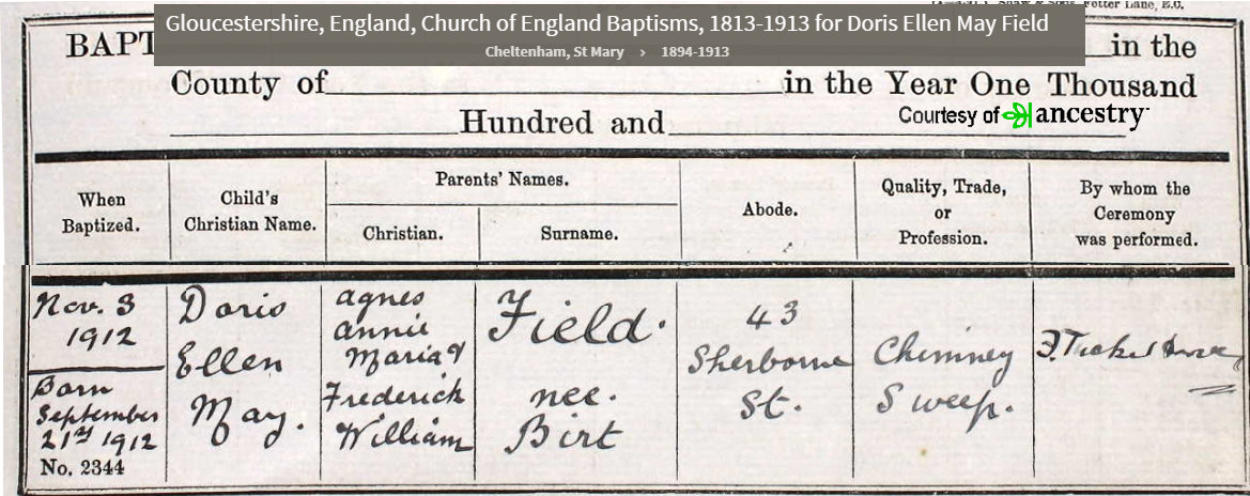 Gloucestershire, England, Church of England Baptisms, 1813-1913 for Doris Ellen May Field
Cheltenham, St Mary › 1894-1913
BAPT in the
County of in the Year One Thousand
Hundred and
Courtesy of ancestry
When
Baptized.
Child's
Christian Name.
Parents' Names.
Christian.
Surname.
Abode.
Quality, Trade,
or
Profession.
By whom the
Ceremony
was performed.
Nov. 3
1912
Born
September
21st 1912
No. 2344
Doris
Ellen
May.
agnes
annie
Maria &
Frederick
William
Field.
nee.
Birt
43
Sherborne
St.
Chimney
Sweep.